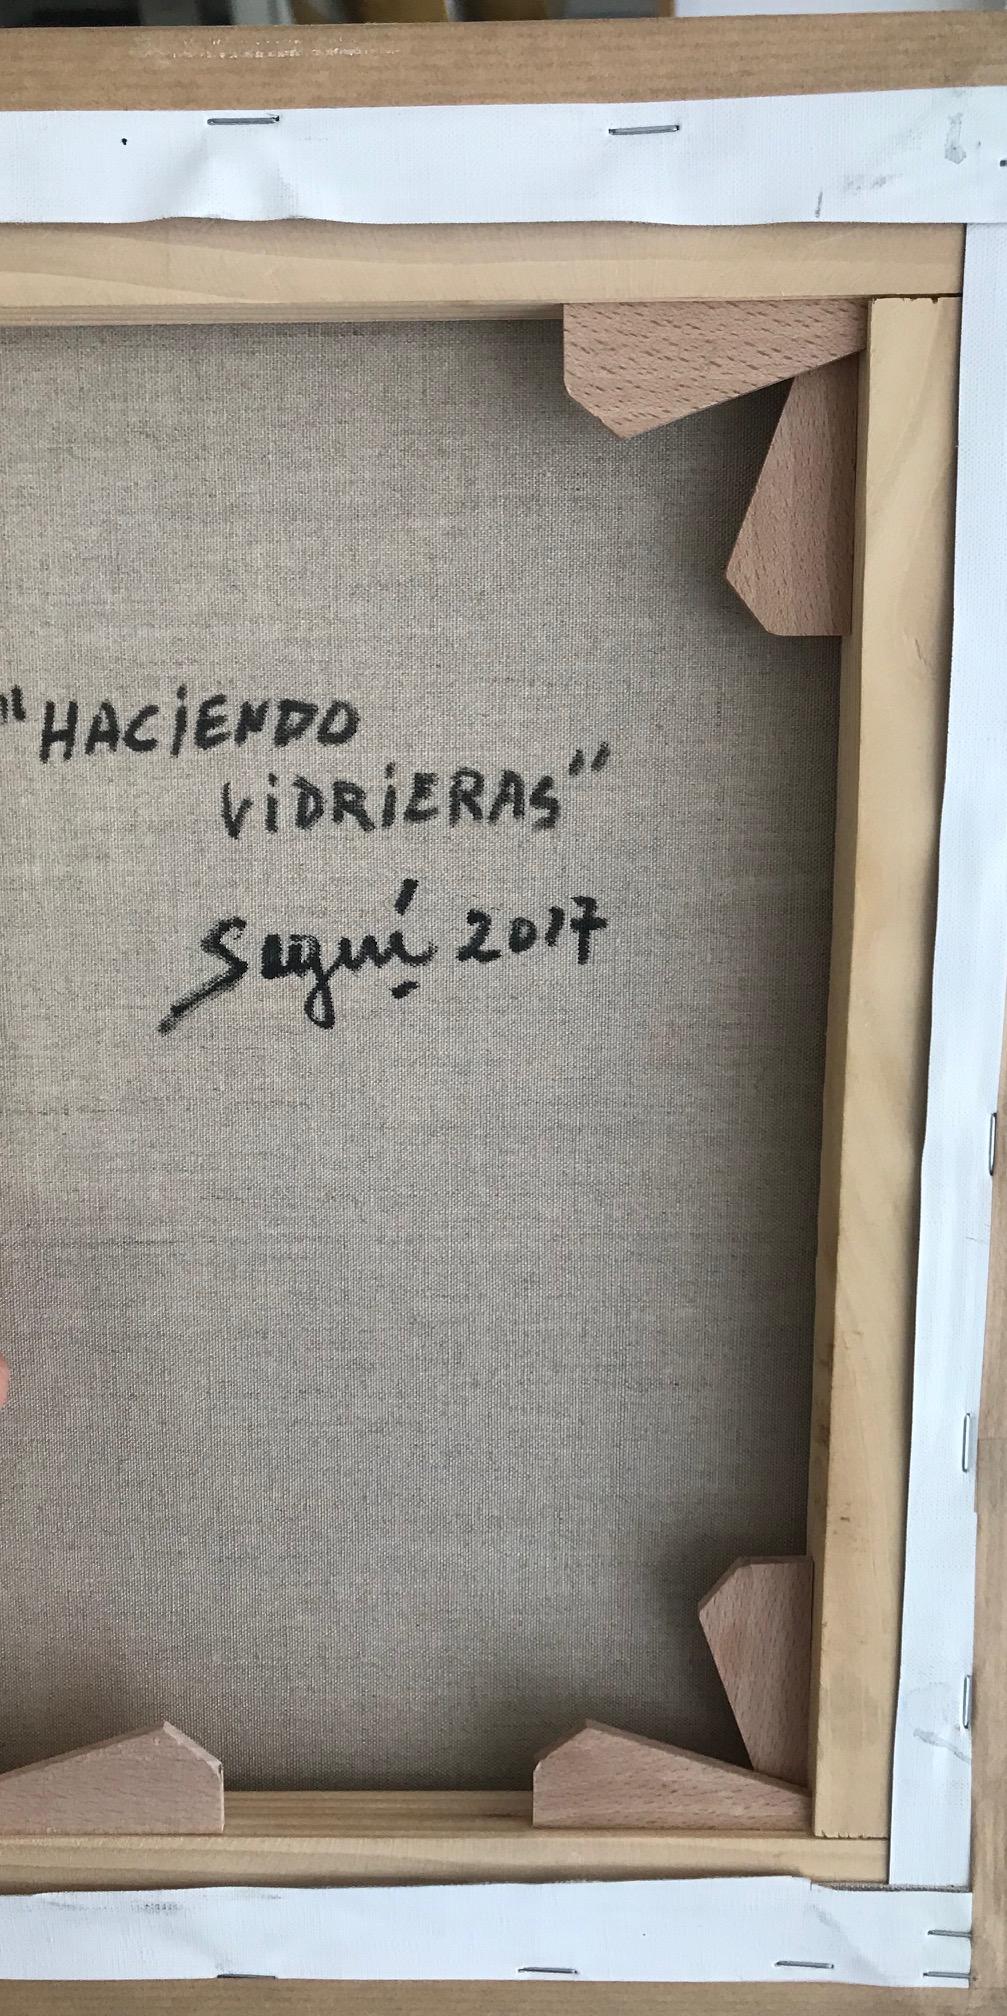 "HACiENDO
ViDRiERAS"
Seguí 2017